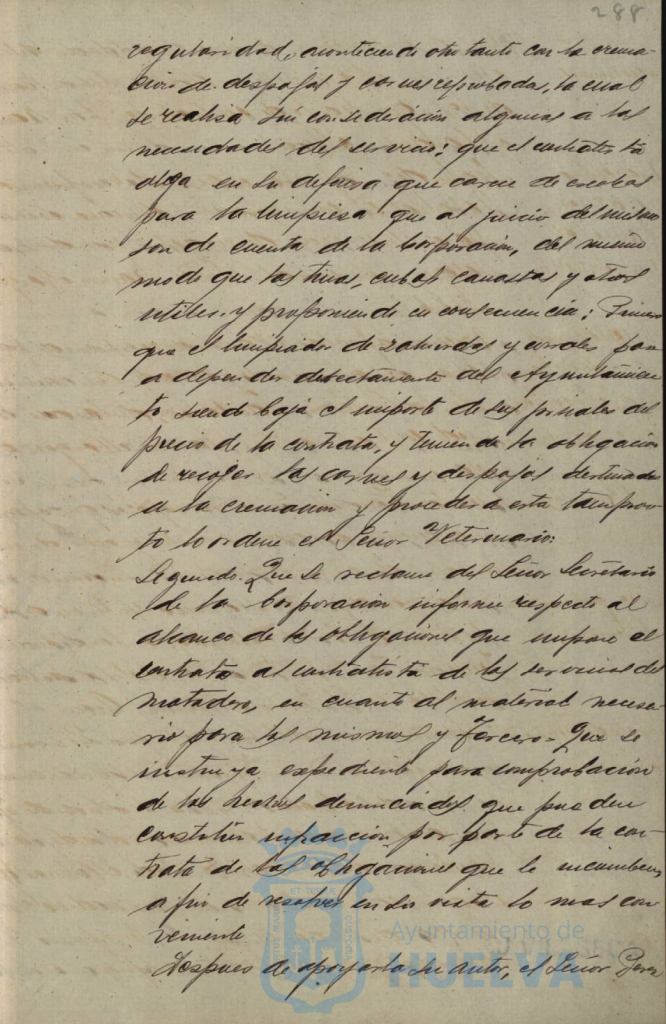 288
regularidad, aconteciendo otro tanto con la crema-
ción de despojos y carnes reprobadas, la cual
se realiza sin consideración alguna a las
necesidades del servicio; que el contratista
alega en su defensa que carece de escobas
para la limpieza que al juicio del mismo
son de cuenta de la Corporación, del mismo
modo que las tinas, cubas canastas y otros
utiles. y proponiendo en consecuencia: Primero
que el limpiador de zahurdas y corrales pase
a depender directamente del Ayuntamien
to siendo baja el importe de sus jornales del
precio de la contrata, y teniendo la obligación
de recojer las carnes y despojos destinados
a la cremación y proceder a esta tan pron-
to lo ordene el Señor Veterinario.
Segundo. Que se reclame del Señor Secretario
de la Corporación informe respecto al
alcance de las obligaciones que impone el
contrato al contratista de los servicios del
matadero, en cuanto al material necesa-
rio para los mismos y Tercero. Que se
instruya expediente para comprobación
de los hechos denunciados que pueden
constituir infracción por parte de la con-
trata de las obligaciones que le incumben
a fin de resolver en su vista lo mas con-
veniente.
Despues de apoyarla su autor, el Señor Perez
Ayuntamiento de
HUELVA